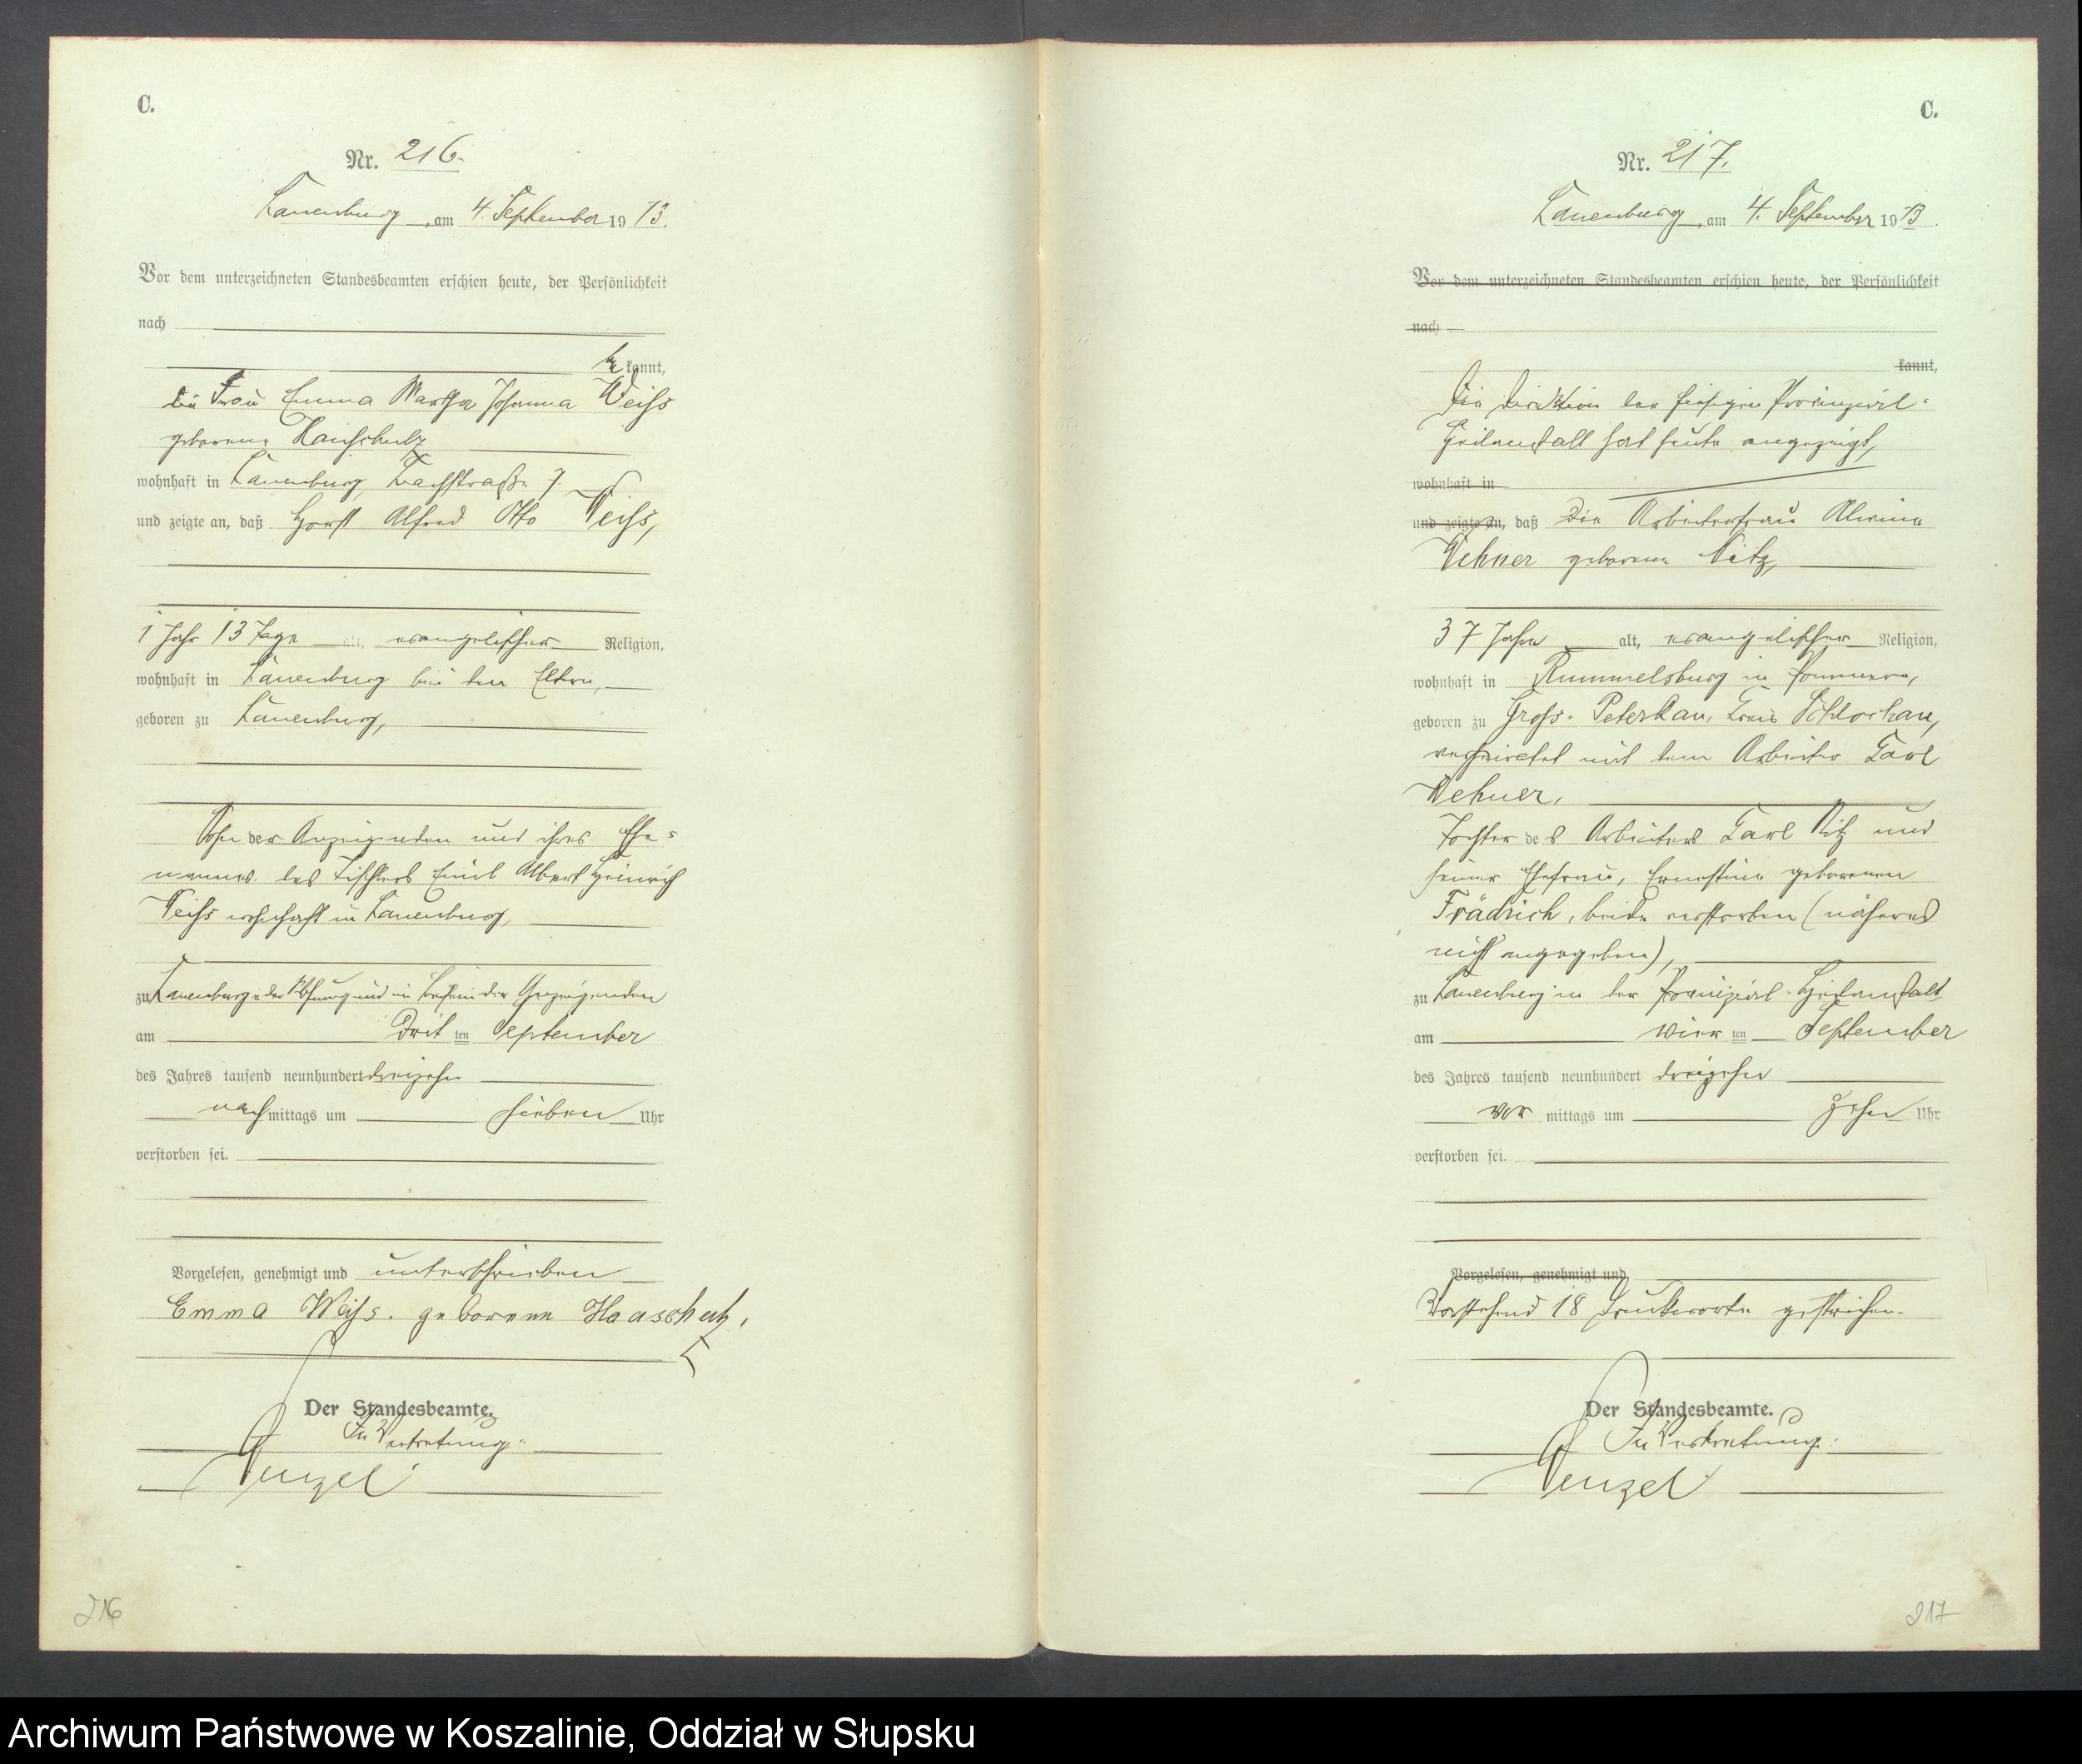 C.
Nr. 216.
Lauenburg, am 4. September 1913.
Vor dem unterzeichneten Standesbeamten erschien heute, der Persönlichkeit
nach
bekannt,
die Frau Emma Martha Johanna Weiß
geborene
wohnhaft in Lauenburg, 7.
und zeigte an, daß Horst Alfred Otto Weiß,
1 Jahr 13 Tage alt, evangelischer Religion,
wohnhaft in Lauenburg bei den Eltern,
geboren zu Lauenburg,
Sohn der Anzeigenden und ihres Ehe-
mannes des Tischlers Emil Albert Heinrich
Weiß wohnhaft in Lauenburg,
zu Lauenburg in der Wohnung und in Beisein der Anzeigenden
am drit ten September
des Jahres tausend neunhundert dreizehn
nachmittags um sieben Uhr
verstorben sei.
Vorgelesen, genehmigt und unterschrieben
Emma Weiss. geborene Haaschutz,
Der Standesbeamte.
In Vertretung:
Wenzel
216
C.
Nr. 217.
Lauenburg, am 4. September 1913.
Vor dem unterzeichneten Standesbeamten erschien heute, der Persönlichkeit
nach
kannt,
Die Direktion der hiesigen Provinzial-
Heilanstalt hat heute angezeigt,
wohnhaft in
und zeigte an, daß die Arbeiterfrau Alwine
Wehner geborene Nitz,
37 Jahre alt, evangelischer Religion,
wohnhaft in Rummelsburg in Pommern,
geboren zu Groß-Peterkau, Kreis Schlochau,
verheiratet mit dem Arbeiter Carl
Wehner,
Tochter des Arbeiters Carl Nitz und
seiner Ehefrau, Ernestine geborenen
Frädrich, beide verstorben (näheres
nicht angegeben),
zu Lauenburg in der Provinzial-Heilanstalt
am vier ten September
des Jahres tausend neunhundert dreizehn
vor mittags um zehn Uhr
verstorben sei.
Vorgelesen, genehmigt und
Vorstehend 18 Druckworte gestrichen.
Der Standesbeamte.
In Vertretung:
Wenzel
217
Archiwum Państwowe w Koszalinie, Oddział w Słupsku